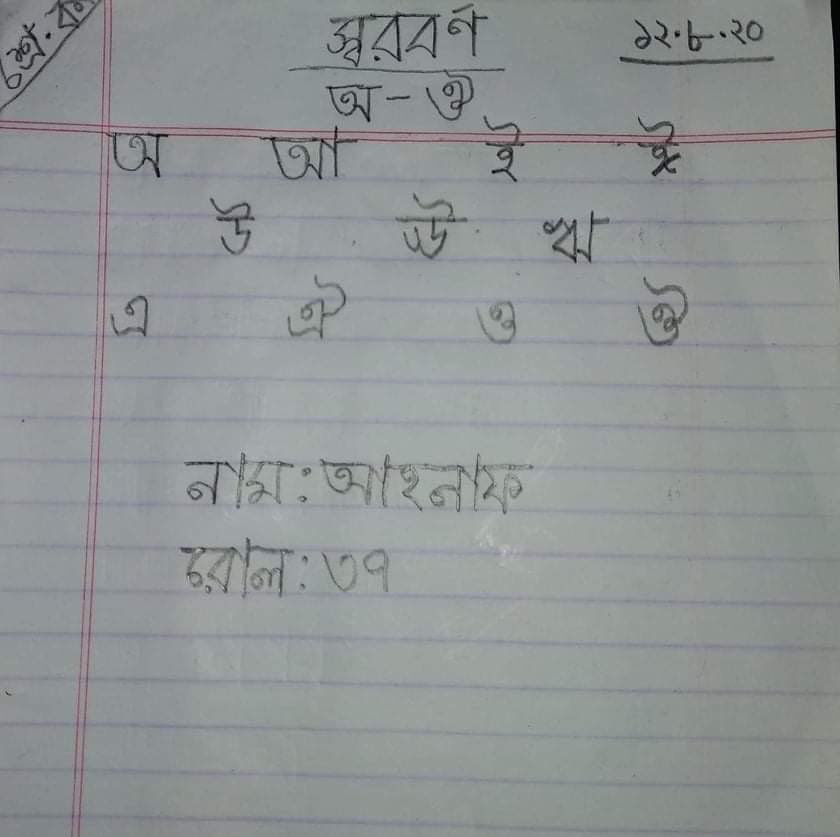 স্বরবর্ণ
১২.৮.২০
অ - ঔ
অ আ ই ঈ
উ ঊ ঋ
এ ঐ ও ঔ
নাম: আহনাফ
রোল: ৩৭